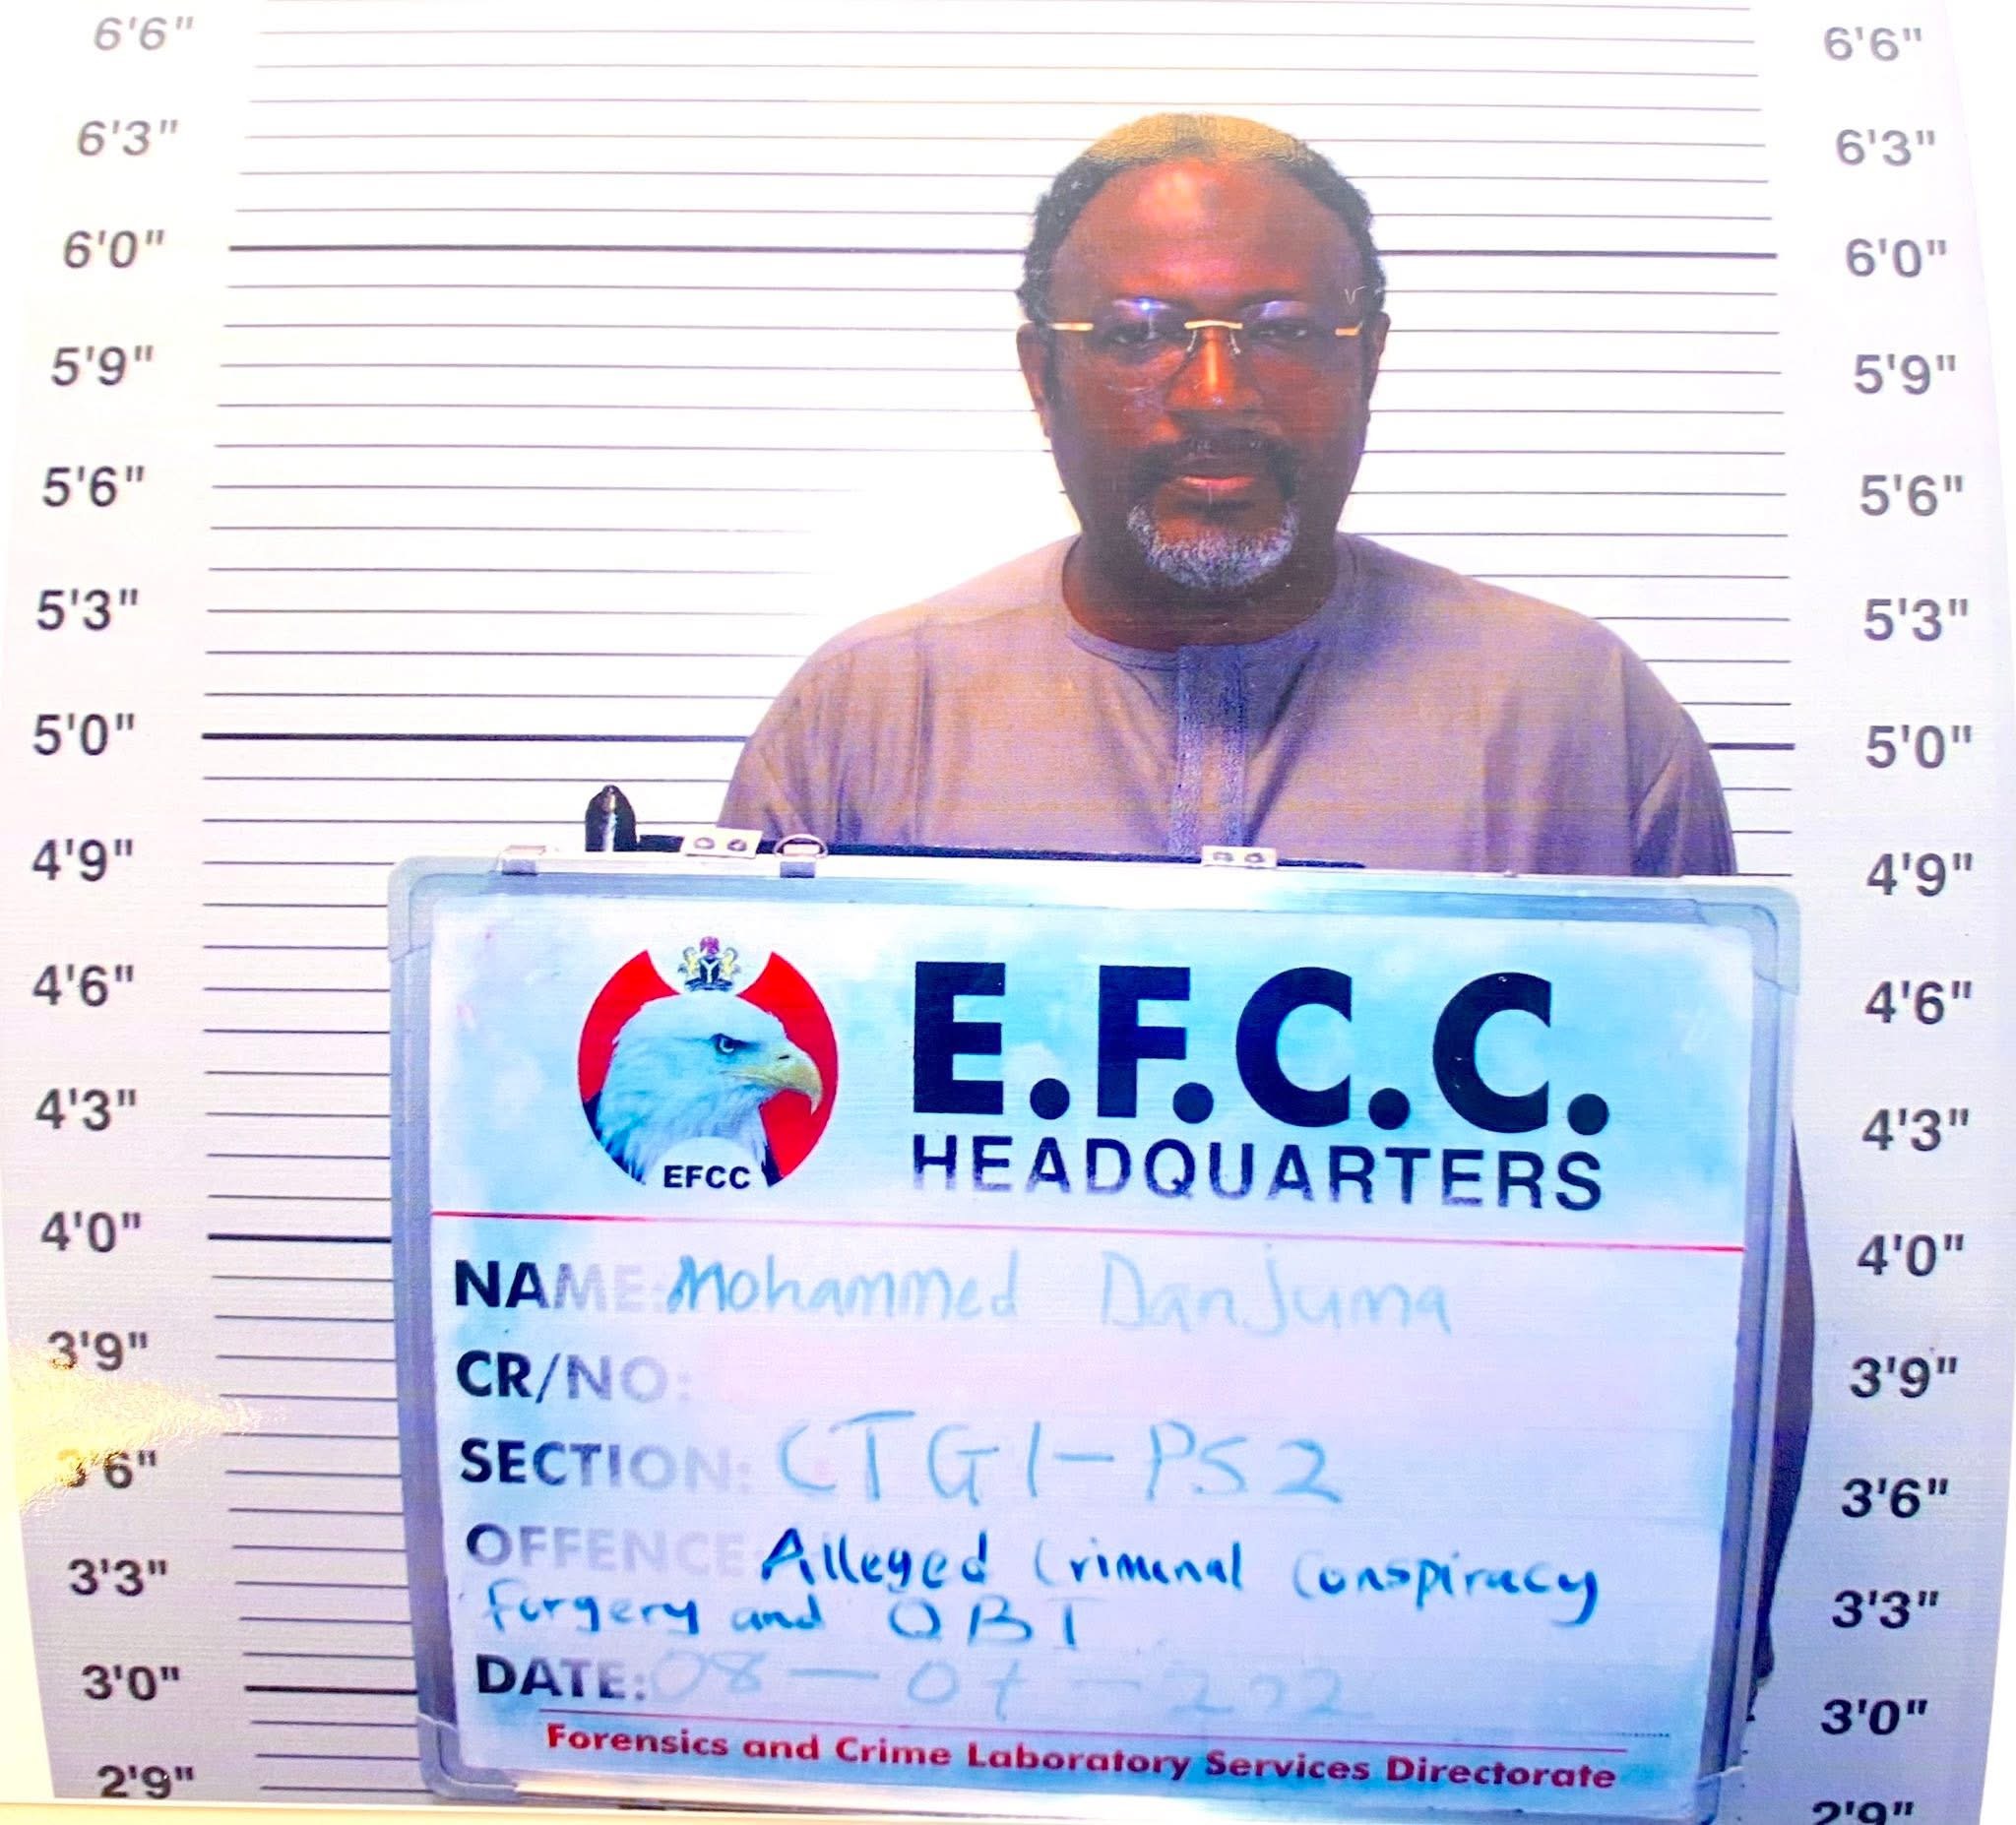 6'6" 6'6"
6'3" 6'3"
6'0" 6'0"
5'9" 5'9"
5'6" 5'6"
5'3" 5'3"
5'0" 5'0"
4'9" 4'9"
E.F.C.C.
4'6" 4'6"
HEADQUARTERS
EFCC
4'3" 4'3"
4'0" 4'0"
NAME: Mohammed Danjuma
3'9" 3'9"
CR/NO:
SECTION: CTG1-PS2
3'6" 3'6"
OFFENCE Alleged Criminal Conspiracy
3'3" 3'3"
forgery and OBT
DATE: 08-07-202
3'0" 3'0"
Forensics and Crime Laboratory Services Directorate
2'9" 2'9"